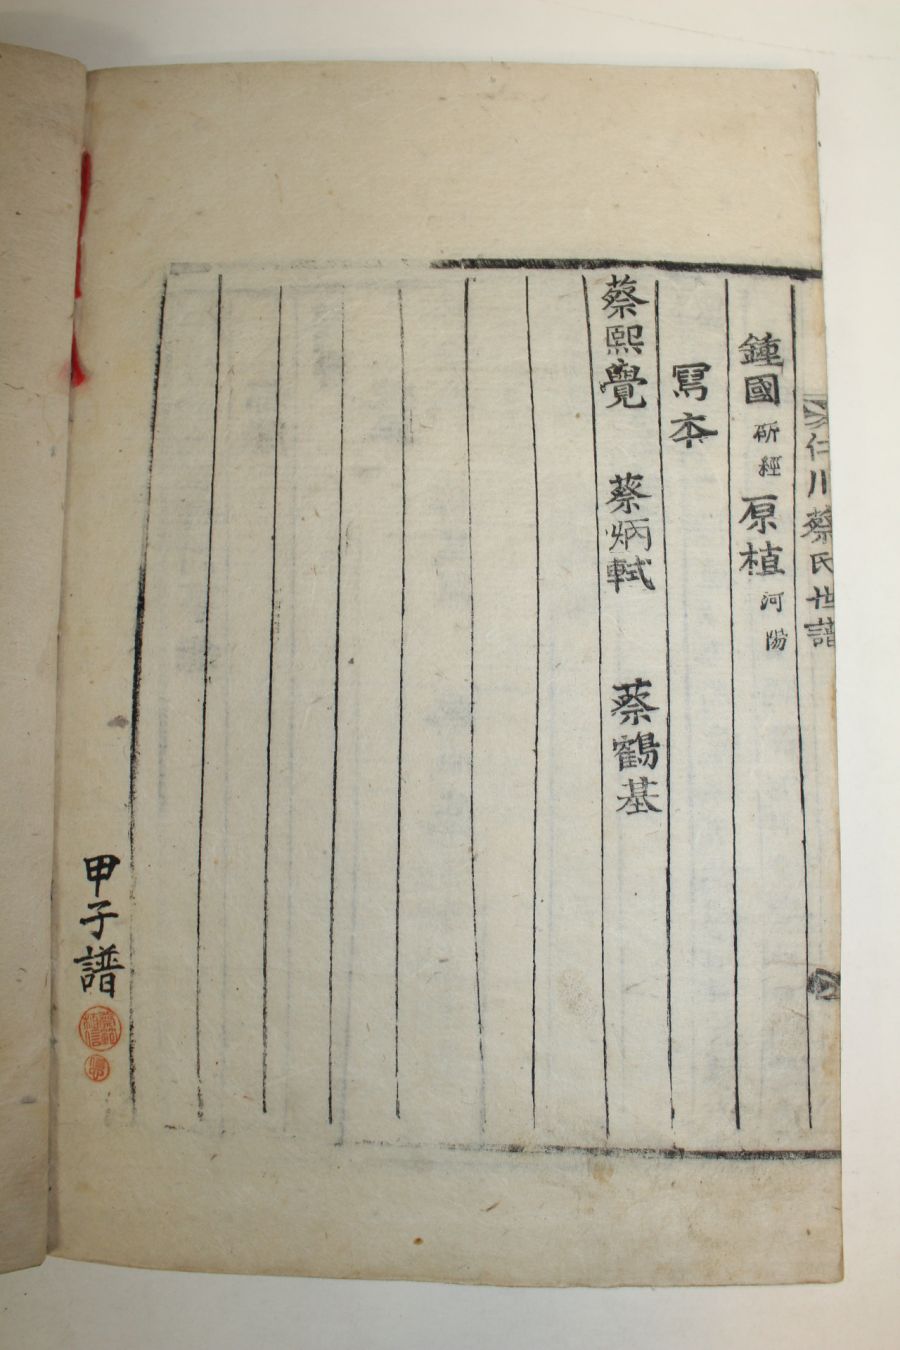 仁川蔡氏世譜
鍾國 斫經 原植 河陽
寫本
蔡熙覺 蔡炳軾 蔡鶴基
甲子譜